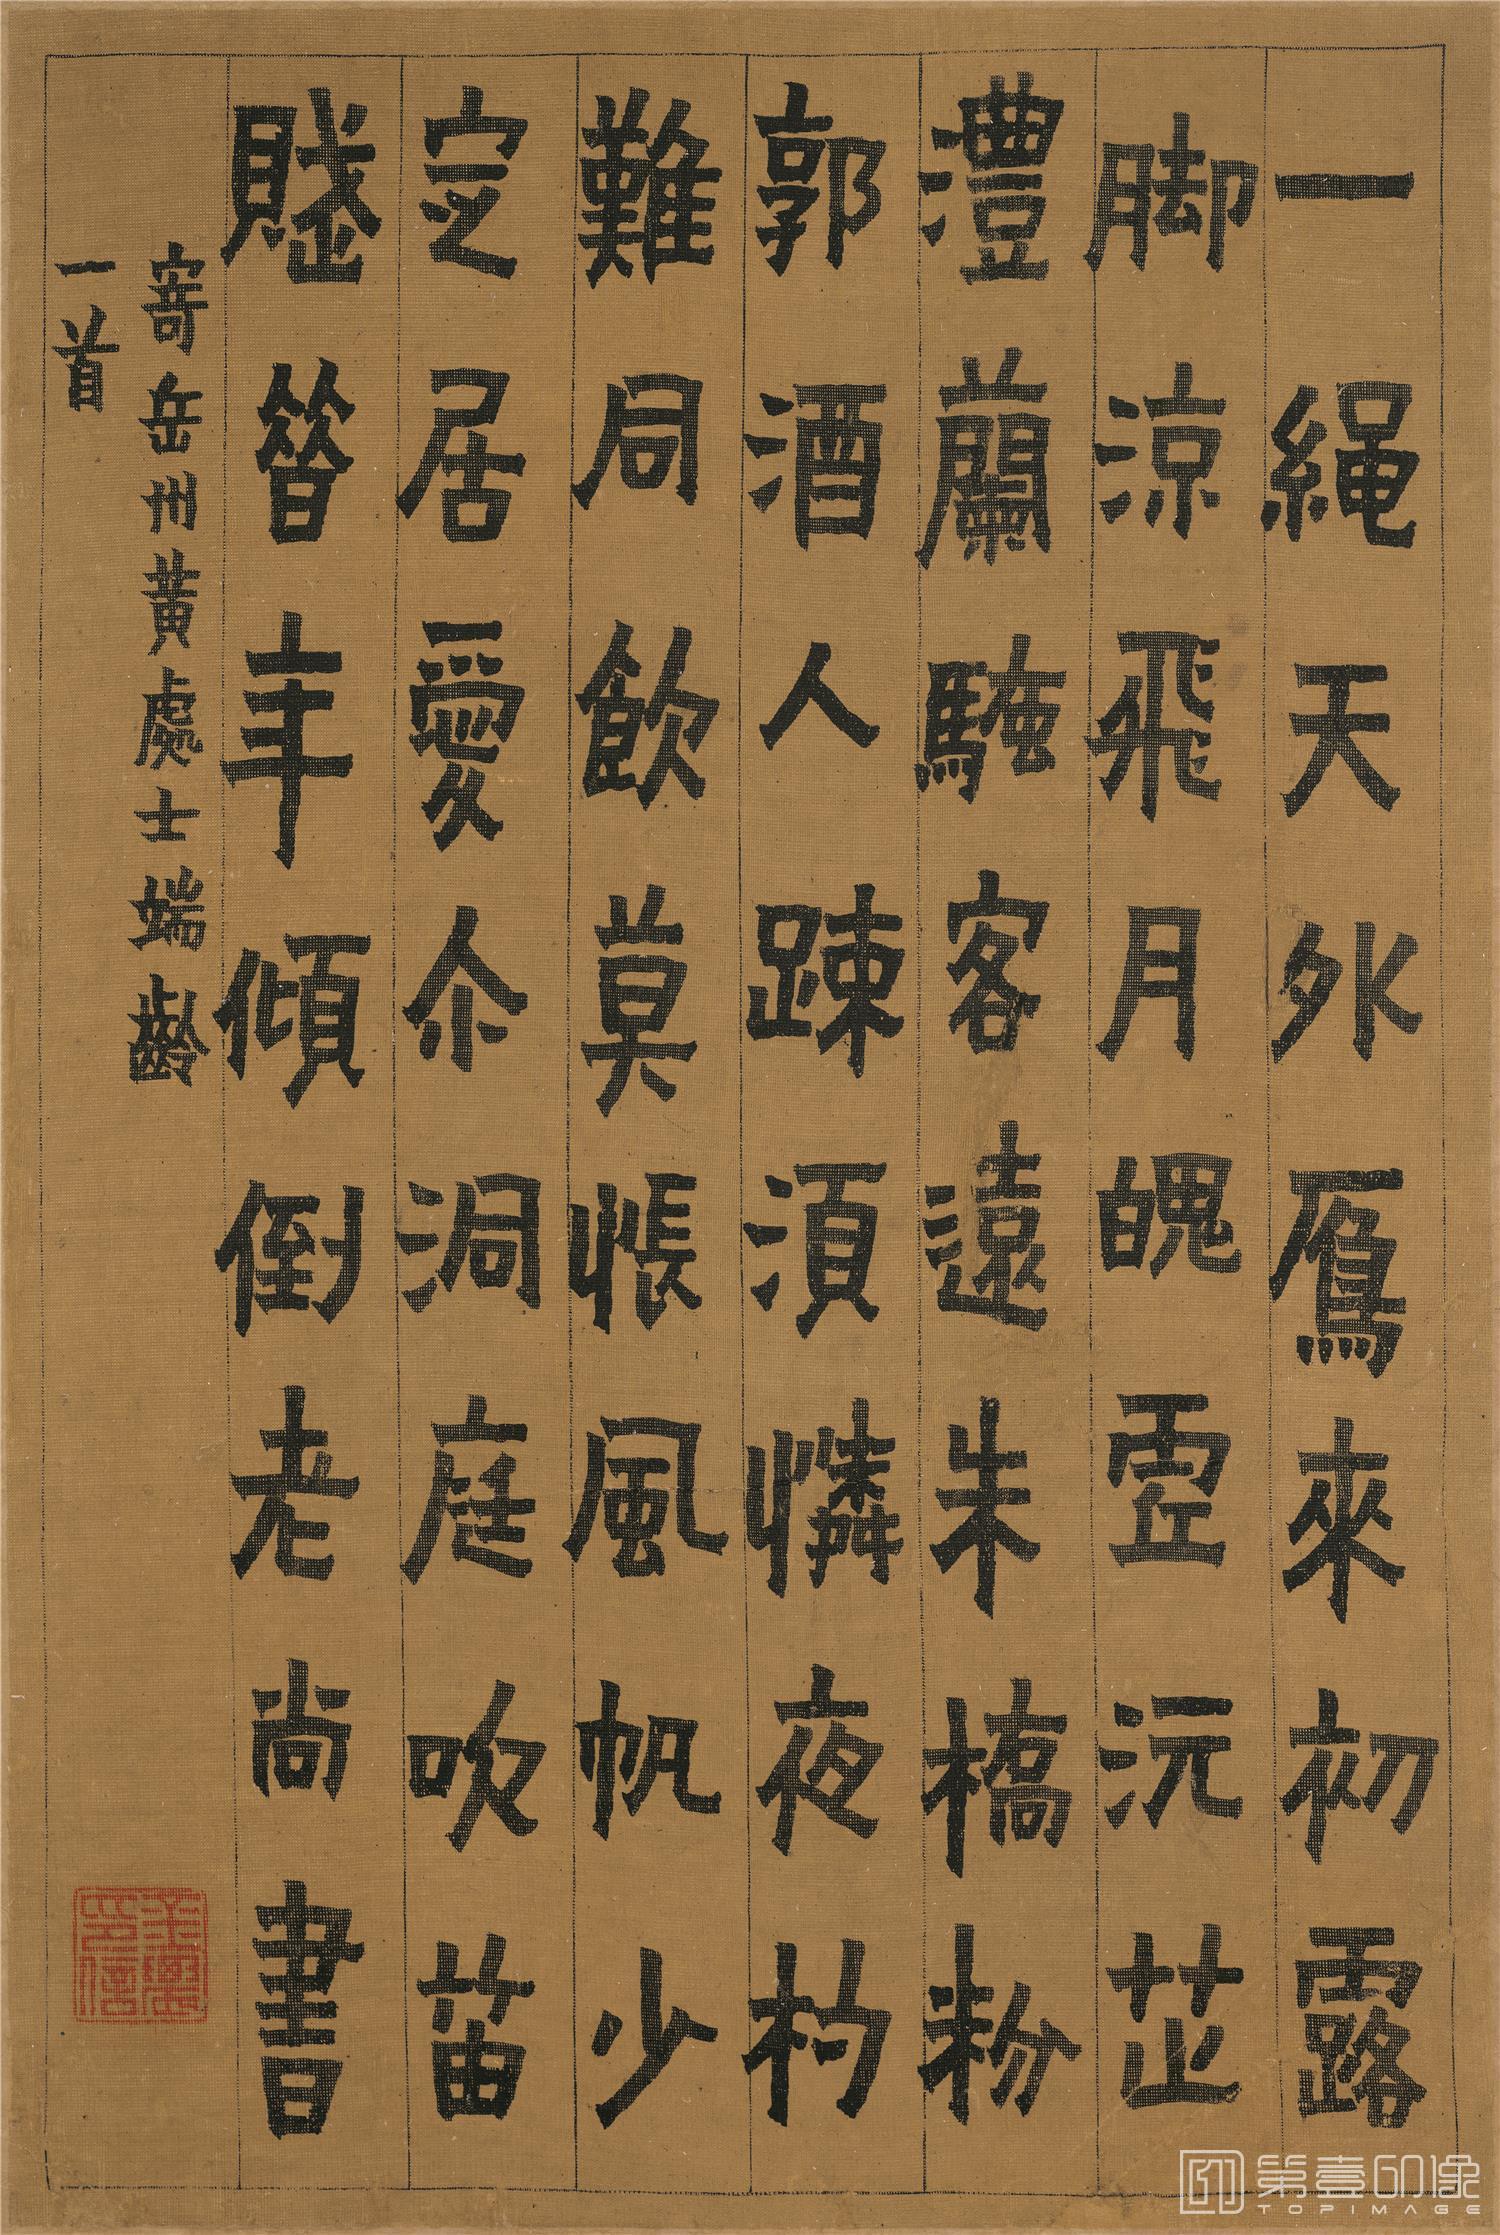 一繩天外鴈來初露
脚涼飛月魄虛沅芷
澧蘭騷客遠朱橋粉
郭酒人疎須憐夜杓
難同飲莫悵風帆少
定居愛尒洞庭吹苖
賤昔年傾倒老尚書
寄岳州黃處士端齡
一首
第壹印像
TOPIMAGE